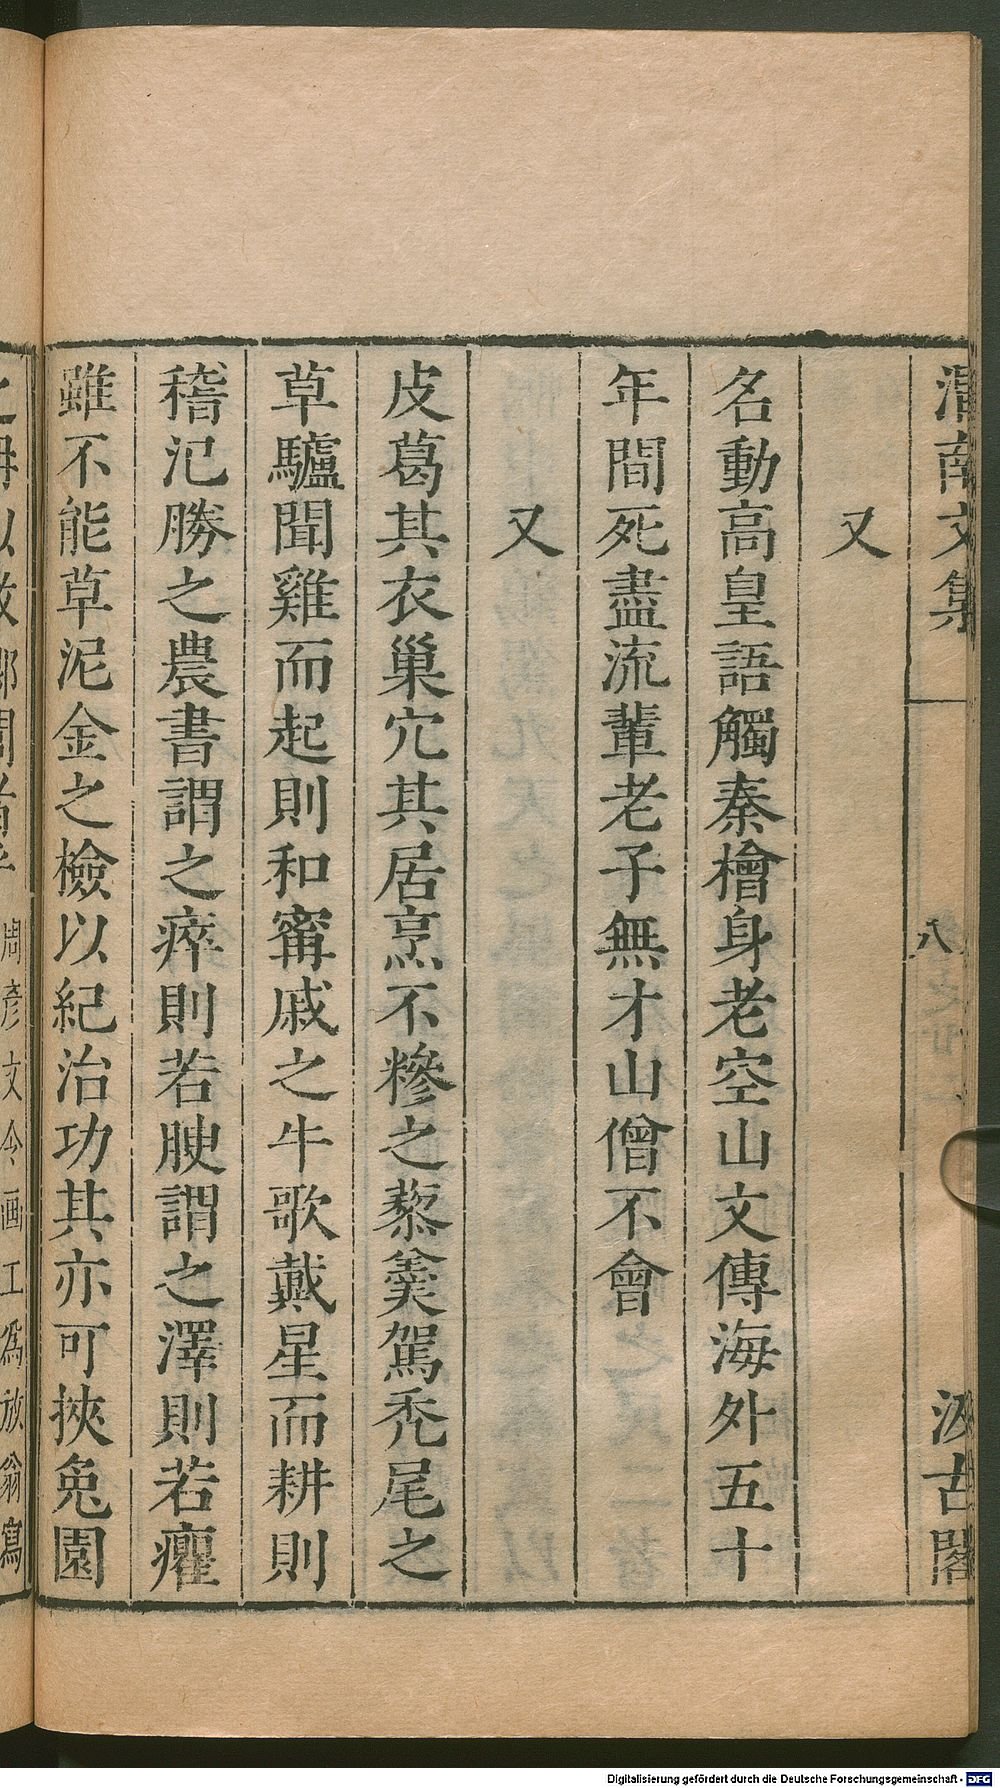 渭南文集
八
汲古閣
又
名動高皇語觸秦檜身老空山文傳海外五十
年間死盡流輩老子無才山僧不會
又
皮葛其衣巢穴其居烹不糝之藜羹駕禿尾之
草驢聞雞而起則和甯戚之牛歌戴星而耕則
稽氾勝之農書謂之瘁則若腴謂之澤則若癯
雖不能草泥金之檢以紀治功其亦可挾兔園
周彥文令画工爲放翁寫
Digitalisierung gefördert durch die Deutsche Forschungsgemeinschaft - DFG